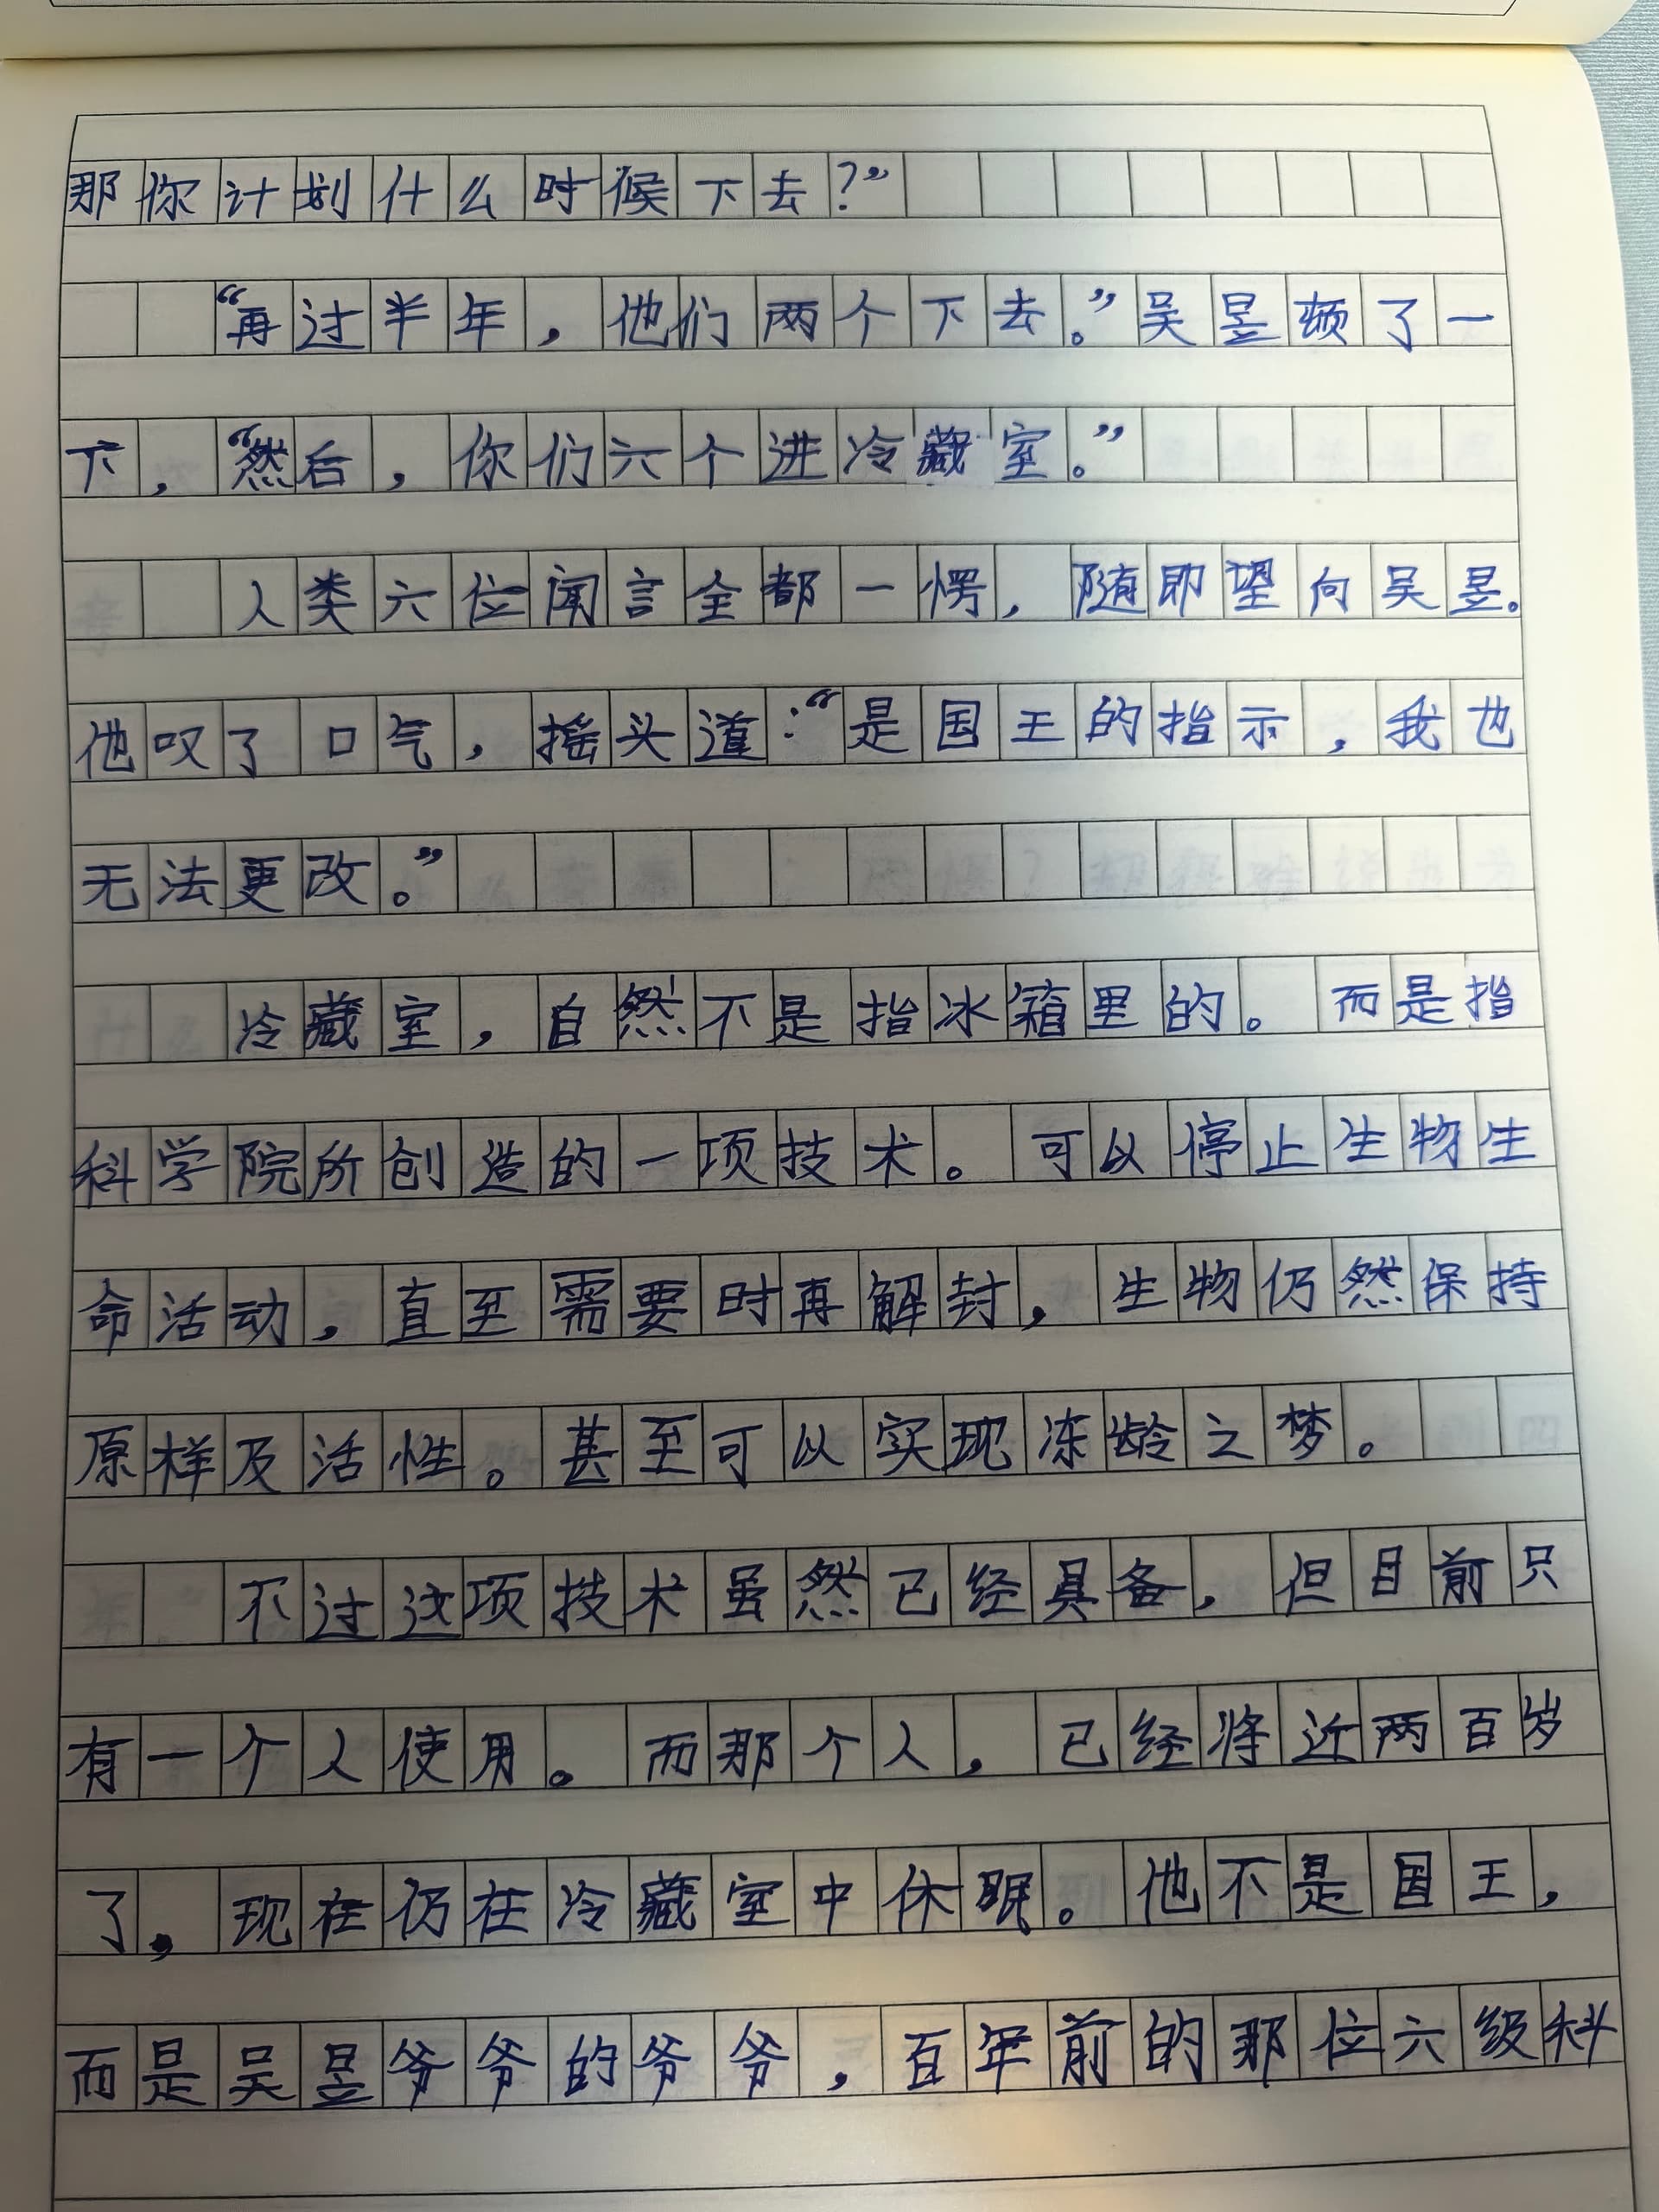 那你计划什么时候下去?”
“再过半年，他们两个下去。”吴昱顿了一
下，“然后，你们六个进冷藏室。”
人类六位闻言全都一愣，随即望向吴昱。
他叹了口气，摇头道：“是国王的指示，我也
无法更改。”
冷藏室，自然不是指冰箱里的。而是指
科学院所创造的一项技术。可以停止生物生
命活动，直至需要时再解封，生物仍然保持
原样及活性。甚至可以实现冻龄之梦。
不过这项技术虽然已经具备，但目前只
有一个人使用。而那个人，已经将近两百岁
了，现在仍在冷藏室中休眠。他不是国王，
而是吴昱爷爷的爷爷，百年前的那位六级科